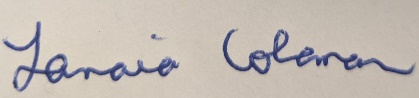 Lanaia Coleman